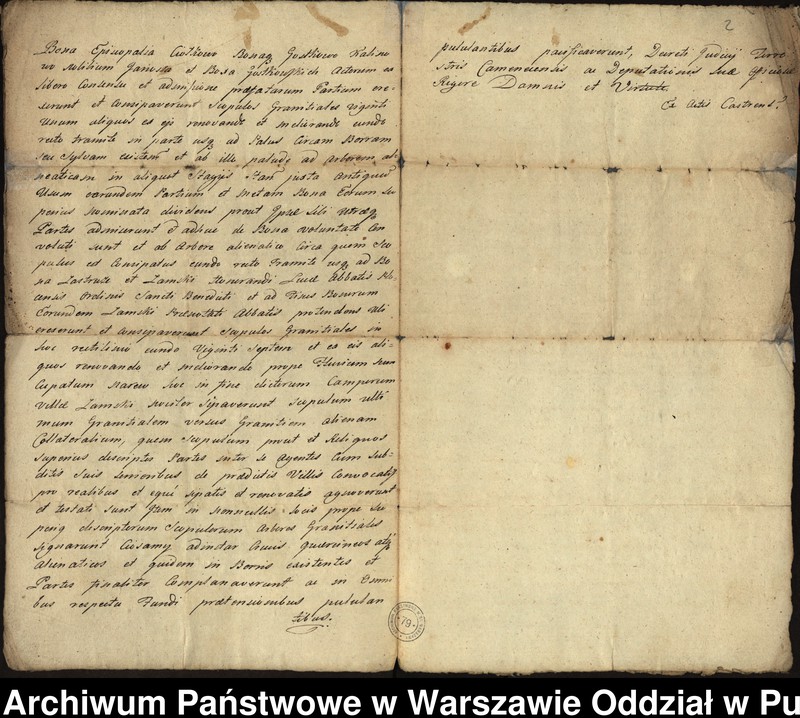 Bona Episcopalia Ciołkowo Bonaq Gostkowo Kalino
wo nobilium Janusso et Bosa Gostkowskich Actorum ex
libero Consensu et admissione praefatarum Partium ere-
xerunt et Consipaverunt Scopulos Granitiales viginti
Unum aliquos ex eis renovando et meliorando eundo
recto tramite in parte usq ad Palus Circam Borram
seu Sylvam existen et ab illa palude ad Arborem al-
neaticam in aliquot Stayis Stan juxta Antiquum
Usum earundem Partium et metam Bona Eorum Su
perius nominata dividens prout Ipsae sibi utraeq
Partes admiserunt et adhuc de Bona voluntate Con
voluti sunt et ab Arbore alienatica Circa quem Sco
pulus est Consipatus eundo recto tramite usq ad Bo
na Zastruze et Zamski Honorandi Luce Abbatis
censis Ordinis Sancti Benedicti et ad Fines Bonorum
Eorundem Zamski Praenotati Abbatis protendens ubi
erexerunt et consipaverunt Scopulos Granitiales in
hoc rectilinio eundo Viginti Septem et ex eis ali
quos renovando et meliorando prope Fluvium nun
cupatum Narew hoc in fine dictorum Camporum
Villae Zamski noviter Sipaverunt Scopulum ulti
mum Granitialem versus Granitiem alienam
Collateralium, quem Scopulum prout et Reliquos
superius descriptos Partes inter se Agentes Cum sub-
ditis suis senioribus de praedictis Villis Convocatis
pro realibus et equi sipatis et renovatis agnoverunt
et testati sunt Item in nonnullis locis prope Su
periq descriptorum Scopulorum Arbores Granitiales
signarunt Ciosamy adinstar Crucis quercineos atq
alienaticos et quidem in Borris existentes et
Partes finaliter Complanaverunt ac in Omni
bus respectu Fundi praetensionibus pululan
tibus.
2
pululantibus pacificaverunt, Decreti Judicij Terre
stris Camenecensis ac Deputationis suae Officiosae
Rigore Damnis et Virtute
Ex Actis Castrens.
79
Archiwum Państwowe w Warszawie Oddział w Pu